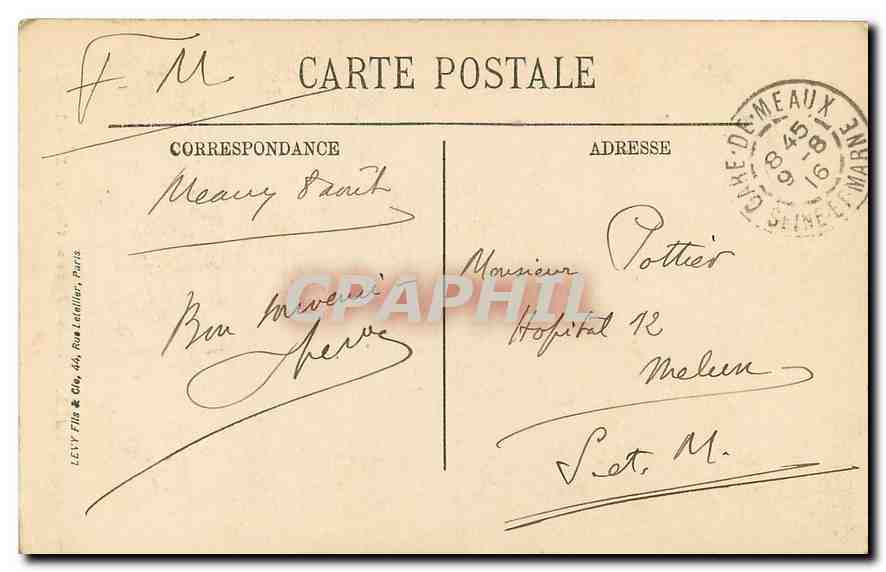 F. M
CARTE POSTALE
GARE-DE-MEAUX
SEINE-ET-MARNE
9 8 45
-8
16
CORRESPONDANCE
Meaux 8 août
Bon souvenir
ADRESSE
Monsieur Pottier
Hopital 12
Melun
S. et. M.
LEVY Fils & Cie, 44, Rue Letellier, Paris
CPAPHIL